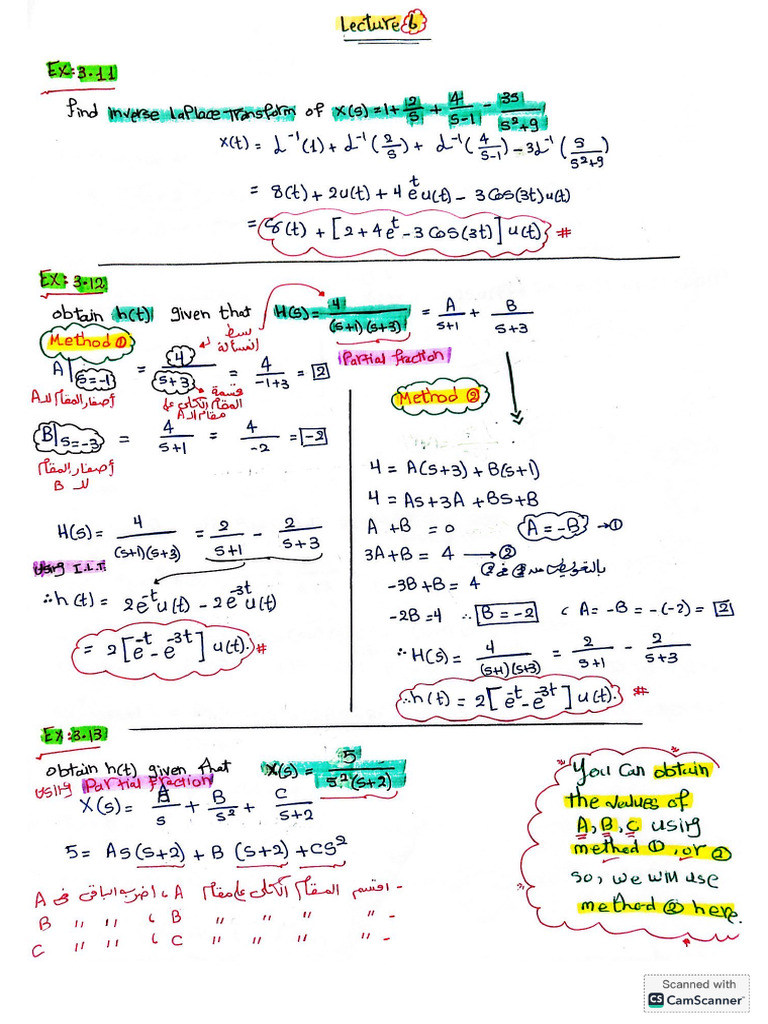 Lecture 6
EX: 3.11
find inverse LaPlace Transform of X(s)=1+ 2/s + 4/s-1 - 3s/s²+9
x(t) = L⁻¹(1) + L⁻¹(2/s) + L⁻¹(4/s-1) - 3L⁻¹(s/s²+9)
= 8(t) + 2u(t) + 4 eᵗ u(t) - 3 Cos(3t)u(t)
= 8(t) + [2+4eᵗ-3 Cos(3t)]u(t) #
EX: 3.12
obtain h(t) given that H(s)= 4/(s+1)(s+3) = A/s+1 + B/s+3
Method ①
بسط المسألة
Partial fraction
A|s=-1 = 4/s+3 = 4/-1+3 = 2
أصفار المقام للـ A
قسمة المقام الكلي على مقام الـ A
B|s=-3 = 4/s+1 = 4/-2 = -2
أصفار المقام للـ B
H(s) = 4/(s+1)(s+3) = 2/s+1 - 2/s+3
Using I.L.T
∴h(t) = 2e⁻ᵗu(t) - 2e⁻³ᵗu(t)
= 2[e⁻ᵗ-e⁻³ᵗ] u(t). #
Method ②
4 = A(s+3) + B(s+1)
4 = As+3A +Bs+B
A +B = 0 A = -B → ①
3A+B = 4 → ②
بالتعويض عن ① في ②
-3B+B = 4
-2B=4 ∴ B = -2 , A= -B = -(-2) = 2
∴H(s) = 4/(s+1)(s+3) = 2/s+1 - 2/s+3
∴h(t) = 2[e⁻ᵗ-e⁻³ᵗ]u(t). #
EX: 3.13
obtain h(t) given that X(s)= 5/s²(s+2)
using Partial fraction
X(s) = A/s + B/s² + C/s+2
5 = As(s+2) + B(s+2) +Cs²
- اقسم المقام الكلي على مقام A ، اضرب الباقي في A
- " " " " B ، " " B
- " " " " C ، " " C
You Can obtain
the values of
A, B, C using
method ①, or ②
so, we will use
method ② here.
Scanned with
CS CamScanner